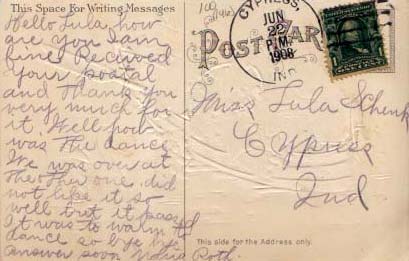 This Space For Writing Messages
Hello Lula, how
are you I am
fine Recieved
your postal
and thank you
very much for
it. Well how
was the dance
We was over at
the other one did
not like it so
well but it passed
it was to warm to
dance so bye bye
answer soon Roth.
POSTCARD
CYPRESS,
JUN
22
P.M.
1908
IND.
Miss Lula Schenk
Cypress
Ind
This side for the Address only.